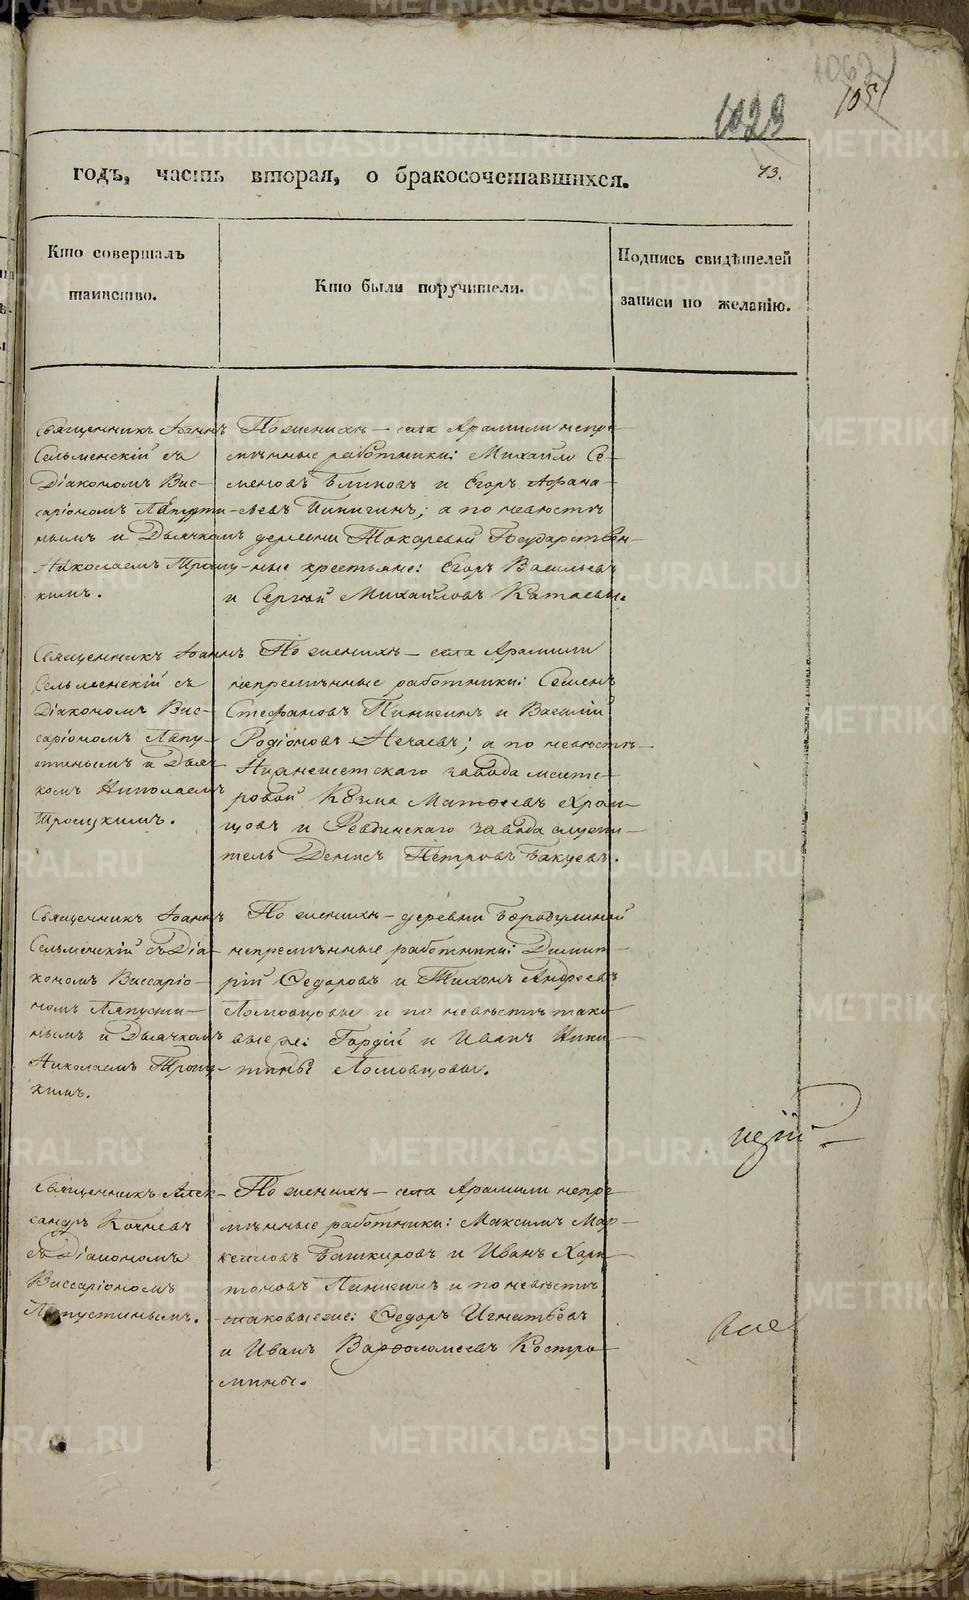 1023
1051
1062
годъ, часть вторая, о бракосочетавшихся.
73.
Кто совершалъ
таинство.
Кто были поручители.
Подпись свидѣтелей
записи по желанію.
Священникъ Іоаннъ
Сельменскій съ
Діакономъ Вис-
саріономъ Ляпусти-
нымъ и Дьячкомъ
Николаемъ Троиц-
кимъ.
По женихѣ – села Арамили непре-
мѣнные работники: Михайло Се-
меновъ Блиновъ и Егоръ Афана-
сьевъ Пинигинъ; а по невѣстѣ
деревни Токаревой Государствен-
ные крестьяне: Егоръ Васильевъ
и Сергей Михайловъ Катаевы.
Священникъ Іоаннъ
Сельменскій съ
Діакономъ Вис-
саріономъ Ляпу-
стинымъ и Дьяч-
комъ Николаемъ
Троицкимъ.
По женихѣ – села Арамили
непремѣнные работники: Семенъ
Стефановъ Пинигинъ и Василій
Родіоновъ Нечаевъ; а по невѣстѣ –
Нижнеисетскаго завода масте-
ровой Козма Матвеевъ Храм-
цовъ и Ревдинскаго завода служи-
тель Денисъ Петровъ
Священникъ Іоаннъ
Сельменскій съ Діа-
кономъ Виссаріо-
номъ Ляпусти-
нымъ и Дьячкомъ
Николаемъ Троиц-
кимъ.
По женихѣ – деревни Бородулиной
непремѣнные работники: Димит-
рій Ѳедоровъ и Тихонъ Андреевъ
Ломовцовы и по невѣстѣ тако-
вые же: Гордій и Иванъ Ники-
тины Ломовцовы.
Священникъ Алек-
сандръ Кочневъ
съ Діакономъ
Виссаріономъ
Ляпустинымъ.
По женихѣ – села Арамили непре-
мѣнные работники: Максимъ Мар-
келовъ Башкировъ и Иванъ Хари-
тоновъ Пинигинъ и по невѣстѣ
таковые же: Ѳедоръ Игнатьевъ
и Иванъ Варфоломеевъ Костро-
мины.
METRIKI.GASO-URAL.RU